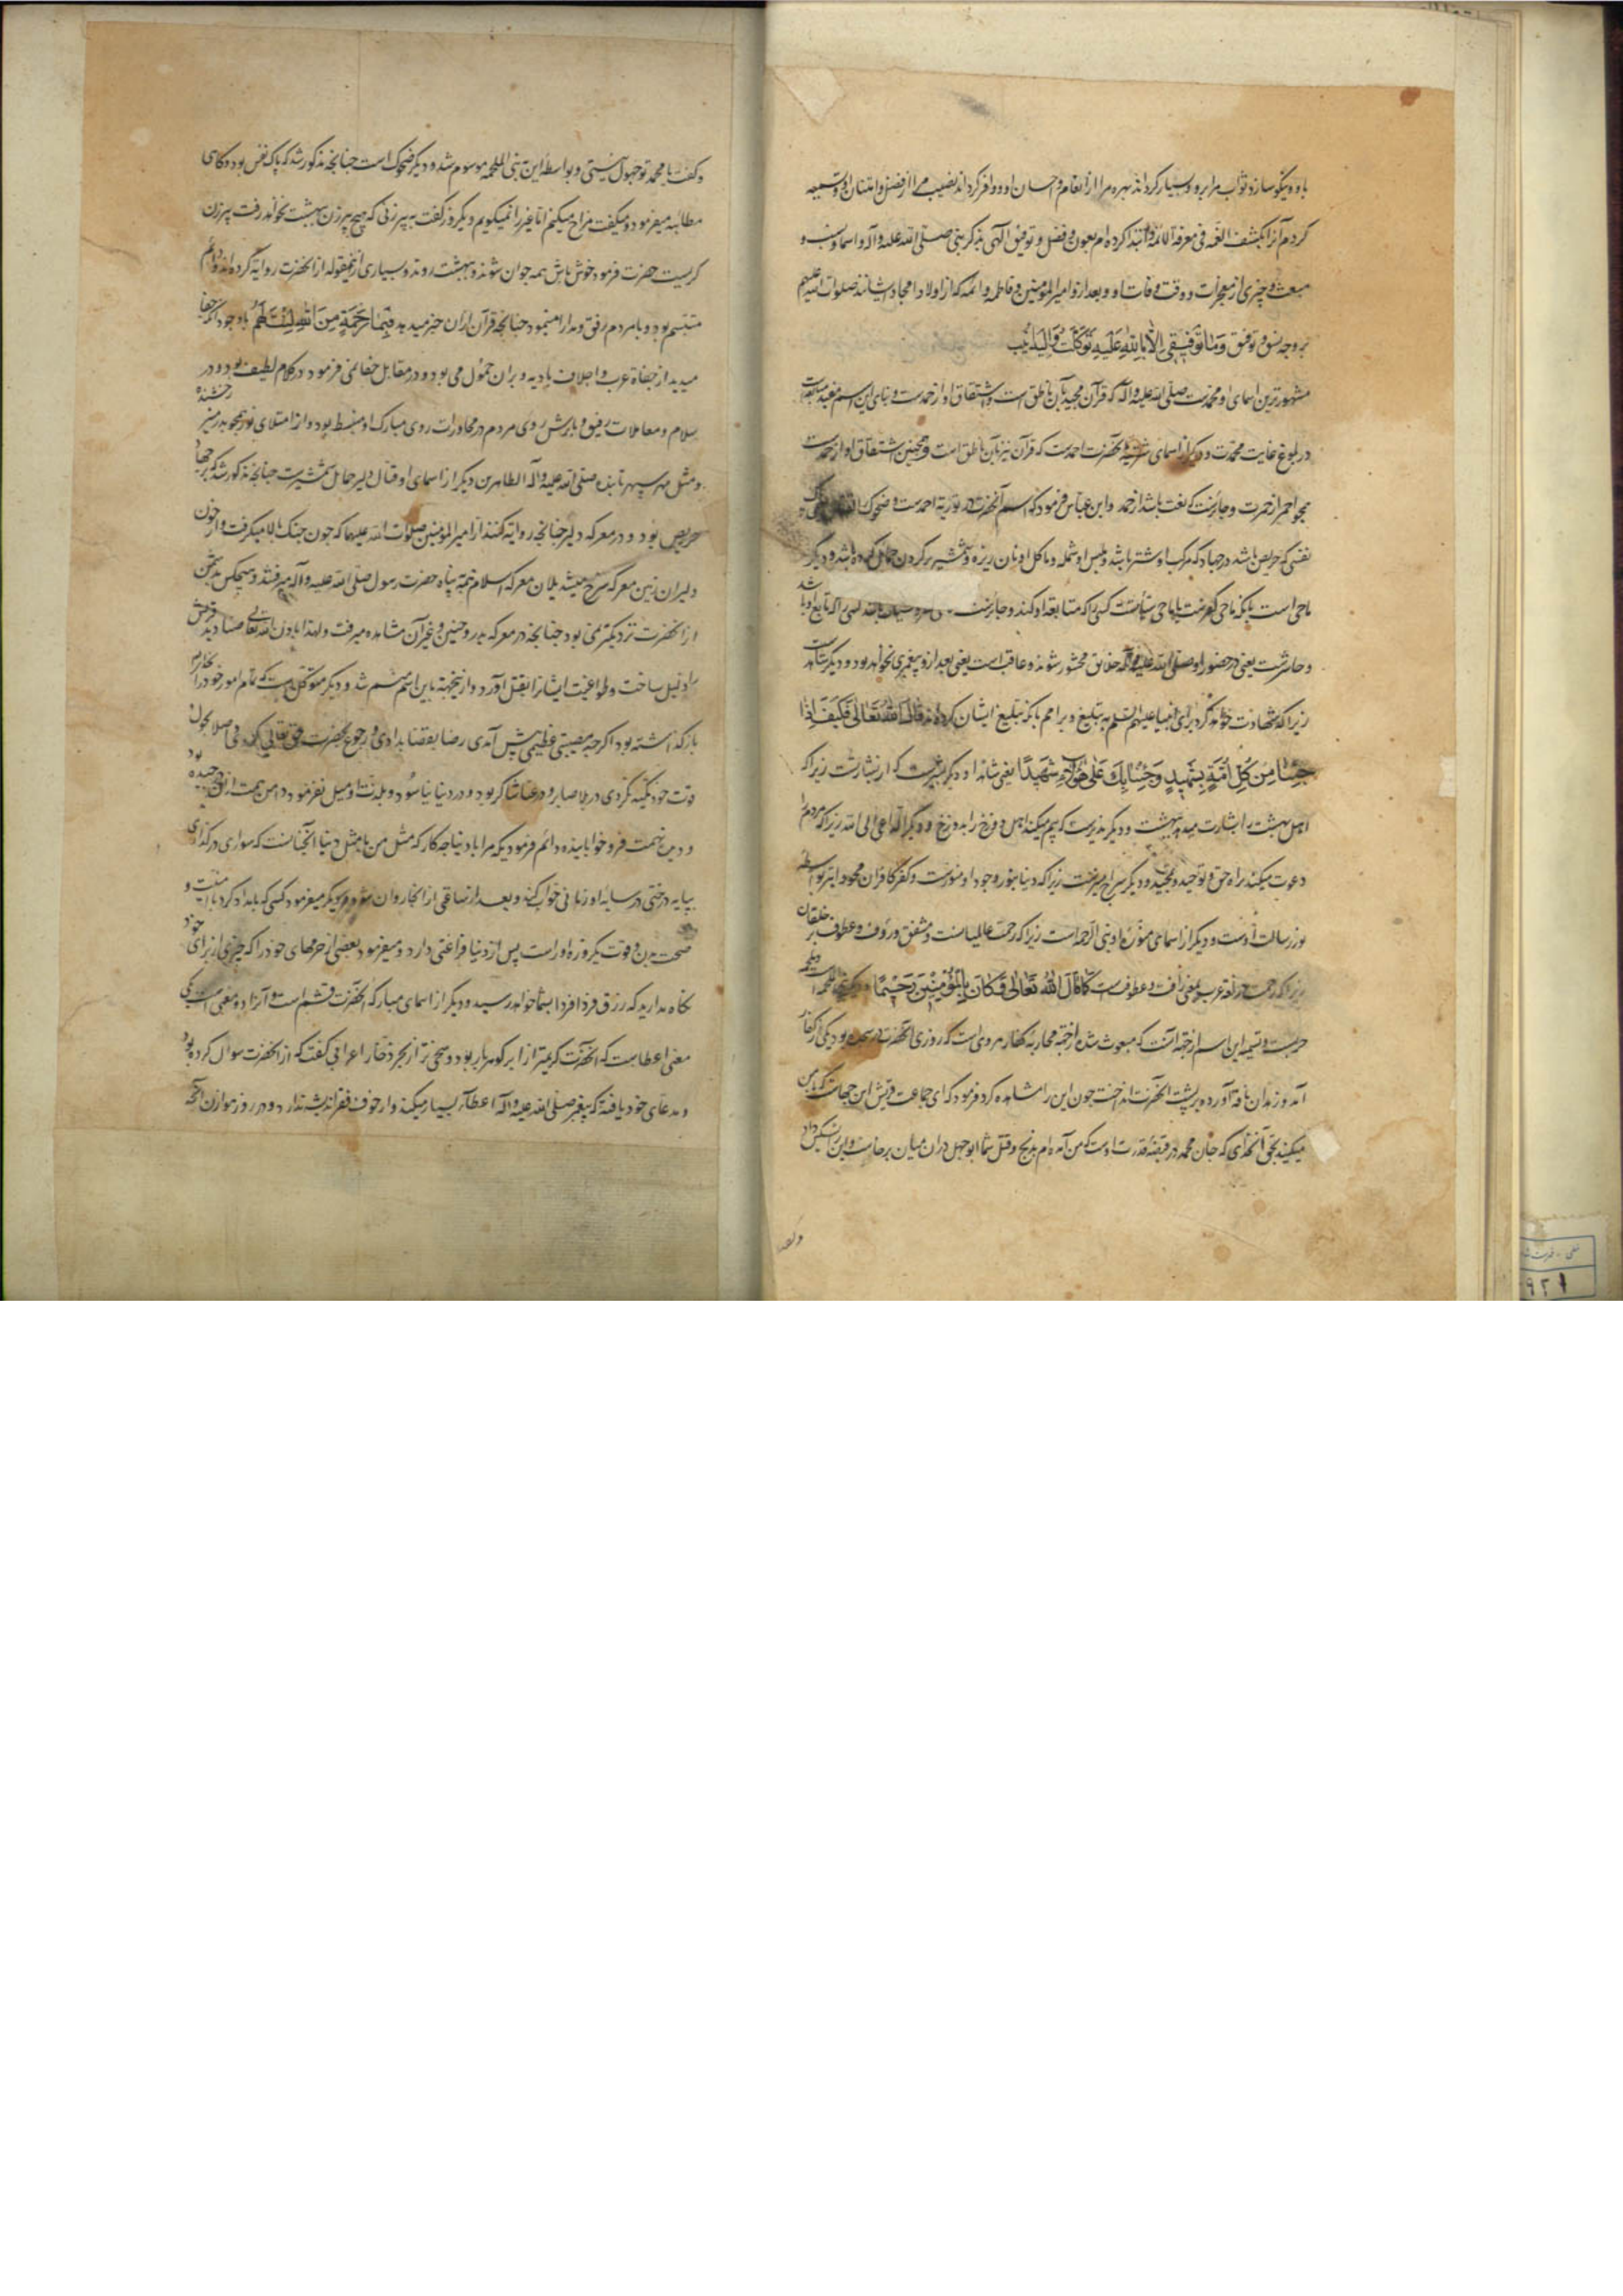 باو و نیکو سازد ثواب مرا برو و بسیار گرداند بهره مرا از انعام و احسان او و وافر گرداند نصیب مرا از فضل و امتنان او و تسمیه
کردم آنرا بکشف الغمه فی معرفة الائمة و ابتدا کرده ام بعون و فضل و توفیق الهی بذکر نبی صلی الله علیه و آله و اسما و نسب و
مبعث و چیزی از معجزات و وقت وفات او و بعد ازو امیر المؤمنین و فاطمه و ائمه که از اولاد امجاد ایشانند صلوات الله علیهم
بر وجه نسق و توفیق وَمَا تَوْفِيقِي إِلَّا بِاللَّهِ عَلَيْهِ تَوَكَّلْتُ وَإِلَيْهِ أُنِيبُ
مشهورترین اسمای او محمدست صلی الله علیه و آله که قرآن مجید بآن ناطق است و اشتقاق او از حمدست و بنای این اسم مفید مبالغه است
در بلوغ غایت محمدت و دیگر از اسمای شریفه آنحضرت احمدست که قرآن نیز بآن ناطق است و همچنین اشتقاق او از حمدست
همچو احمر از حمرت و جایزست که نعت باشد از حمد و ابن عباس فرمود که اسم آنحضرت در توریة احمدست و ضحوک
نفسی که حریص باشد در جهاد که مرکب او شتر باشد و ملبس او شمله و ماکل او نان ریزه و شمشیر بر گردن حمایل کرده باشد و دیگر
ماحی است یا آنکه ماحی کفرست یا ماحی سیآتست کسی را که متابعة او کند و جایزست که تابع او باشد
و حاشرست یعنی در حضور او صلی الله علیه و آله خلایق محشور شوند و عاقب است یعنی بعد ازو پیغمبری نخواهد بود و دیگر شاهدست
زیرا که شهادت خواهد کرد برای انبیا علیهم السلم به تبلیغ و بر امم بآنکه تبلیغ ایشان کرده اند قَالَ اللهُ تَعَالَى فَكَيْفَ إِذَا
جِئْنَا مِنْ كُلِّ أُمَّةٍ بِشَهِيدٍ وَجِئْنَا بِكَ عَلَى هَؤُلَاءِ شَهِيدًا یعنی شاهدا و دیگر بشیرست که از بشارتست زیرا که
اهل بهشت را بشارت میدهد ببهشت و دیگر نذیرست که بیم میکند اهل دوزخ را بدوزخ و دیگر الداعی الی الله زیرا که مردم را
دعوت میکند براه حق و توحید و تمجید و دیگر سراج منیرست زیرا که دنیا بنور وجود او منورست و کفر کافران محو و ابتر بواسطه
نور رسالت اوست و دیگر از اسامی مؤثره او نبی الرحمه است زیرا که رحمت عالمیانست و مشفق و رؤف و عطوف بر خلقان
زیرا که رحمت در لغة عرب بمعنی رافت و عطوفت است کَمَا قَالَ اللهُ تَعَالَى وَكَانَ بِالْمُؤْمِنِينَ رَحِيمًا و دیگر نبی الملحمه است و ملحمه
حربست و تسمیه این اسم از جهة آنست که مبعوث شده از جهة محاربه کفار مروی است که روزی آنحضرت در سجده بود یکی از کفار
آمد و زهدان ناقه آورده بر پشت آنحضرت انداخت چون این را مشاهده کرد فرمود که ای جماعت قریش این چه هاست که با من
میکنید بحق آنخدای که جان محمد در قبضه قدرت اوست که من آمده ام بذبح و قتل شما ابو جهل در آن میان برخاست و این را تسکین داد
و کفت
و کفت یا محمد تو جهول نیستی و بواسطه این نبی الملحمه موسوم شد و دیگر ضحوک است چنانچه مذکور شد که پاک نفس بود و گاهی
مطائبه میفرمود و میگفت مزاح میکنم اما غیر راست نمیگویم و دیگر روز گفت به پیر زنی که هیچ پیرزن ببهشت نخواهد رفت پیرزن
گریست حضرت فرمود خوش باش همه جوان شوند و ببهشت روند و بسیاری ازین مقوله از آنحضرت روایة کرده اند و دایم
متبسم بود و با مردم رفق و مدارا مینمود چنانچه قرآن از آن خبر میدهد فَبِمَا رَحْمَةٍ مِنَ اللهِ لِنْتَ لَهُمْ با وجود آنکه جفا
میدید از جفاة عرب و اجلاف بادیه و بران حمول می بود و در مقابل جفا نمی فرمود در کلام لطیف بود و در
سلام و معاملات رفیق و با پرسش روی مردم در محاورات روی مبارک او منبسط بود و از امتلای نور همچو بدر منیر رخشنده
و مثل مهر سپهر تابنده صلی الله علیه و آله الطاهرین دیگر از اسمای او قتال دلیر حمایل شمشیرست چنانچه مذکور شد که بر جهاد
حریص بود و در معرکه دلیر چنانچه روایة کنند از امیر المؤمنین صلوات الله علیهما که چون جنک بالا میگرفت و از خون
دلیران زمین معرکه سرخ میشد یلان معرکه اسلام همه پناه حضرت رسول صلی الله علیه و آله میرفتند و هیچکس بدشمن
از آنحضرت نزدیکتر نمی بود چنانچه در معرکه بدر و حنین و غیر آن مشاهده میرفت و لهذا باذن الله تعالی صنادید قریش
را ذلیل ساخت و طواغیت ایشانرا بقتل آورد و ازینجهة باین اسم متسم شد و دیگر متوکل است که تمام امور خود را بخدای
باز گذاشته بود اگر چه مصیبتی عظیمی پیش آمدی رضا بقضا بدادی و رجوع بحضرت حق تعالی کردی و اصلا بحول
و قوت خود تکیه نکردی در بلا صابر و در عنا شاکر بود و در دنیا نیاسود و بلذت او میل نفرمود و دامن همت از آن درچیده بود
و دیده نهمت فرو خوابانیده دائم فرمودی که مرا با دنیا چه کار که مثل من با مثل دنیا آنچنانست که سواری در گذری
بپایه درختی در سایه او زمانی خواب کند و بعد از ساعتی از آنجا روان شود و دیگر میفرمود کسی که بامداد کرد با امنیت و
صحت بدن و قوت یکروزه او راست پس از دنیا فراغتی دارد و میفرمود بعضی از حرمهای خود را که چیزی از برای خود
نگاه مدارید که رزق فردا فردا بشما خواهد رسید و دیگر از اسمای مبارکه آنحضرت قثم است و آنرا دو معنی است یکی
معنی اعطاست که آنحضرت کریمتر از ابر گوهر بار بود و سخی تر از بحر ذخار اعرابی گفت که از آنحضرت سوال کرده بود
و مدعای خود یافته که پیغمبر صلی الله علیه و آله اعطاء بسیار میکند و از خوف فقر اندیشه ندارد و در روز هوازن آنچه
۹۲۱